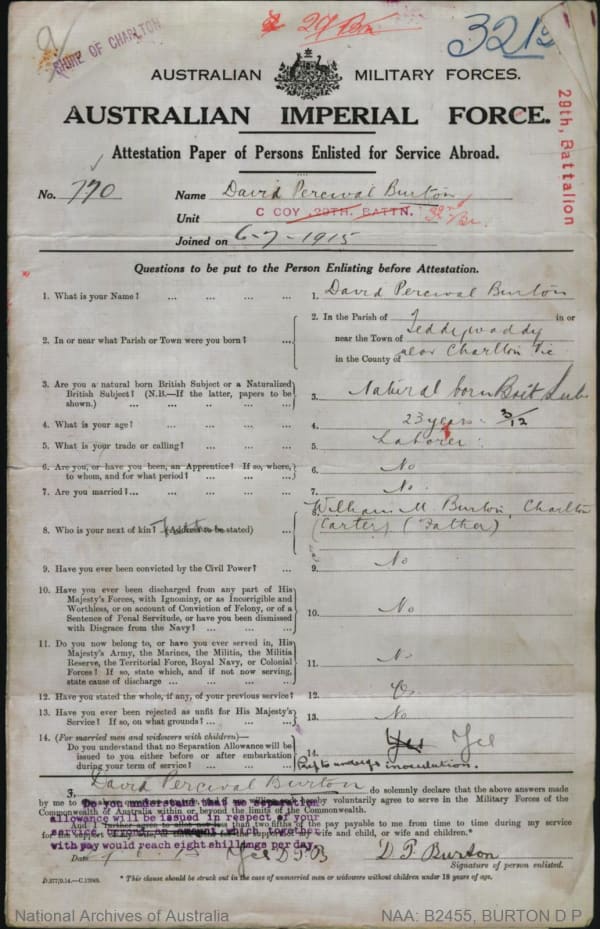 SHIRE OF CHARLTON
29 Bn
321
AUSTRALIAN MILITARY FORCES.
AUSTRALIAN IMPERIAL FORCE.
29th, Battalion
Attestation Paper of Persons Enlisted for Service Abroad.
No. 770 Name David Percival Burton
Unit C COY, 29TH. BATTN.
Joined on 6-7-1915
Questions to be put to the Person Enlisting before Attestation.
1. What is your Name? ... ... ... ... 1. David Percival Burton
2. In or near what Parish or Town were you born? ... 2. In the Parish of Teddywaddy in or
near the Town of near Charlton Vic
in the County of
3. Are you a natural born British Subject or a Naturalized
British Subject? (N.B.—If the latter, papers to be
shown.) ... ... ... ... ... 3. Natural born Brit Sub
4. What is your age? ... ... ... ... 4. 23 years 3/12
5. What is your trade or calling? ... ... ... 5. Laborer
6. Are you, or have you been, an Apprentice? If so, where,
to whom, and for what period? ... ... ... 6. No
7. Are you married? ... ... ... ... 7. No
8. Who is your next of kin? (Address to be stated) ... 8. William M. Burton, Charlton
(Carter) (Father)
9. Have you ever been convicted by the Civil Power? ... 9. No
10. Have you ever been discharged from any part of His
Majesty's Forces, with Ignominy, or as Incorrigible and
Worthless, or on account of Conviction of Felony, or of a
Sentence of Penal Servitude, or have you been dismissed
with Disgrace from the Navy? ... ... ... 10. No
11. Do you now belong to, or have you ever served in, His
Majesty's Army, the Marines, the Militia, the Militia
Reserve, the Territorial Force, Royal Navy, or Colonial
Forces? If so, state which, and if not now serving,
state cause of discharge ... ... ... 11. No
12. Have you stated the whole, if any, of your previous service? 12.
13. Have you ever been rejected as unfit for His Majesty's
Service? If so, on what grounds? ... ... 13. No
14. (For married men and widowers with children)—
Do you understand that no Separation Allowance will be
issued to you either before or after embarkation
during your term of service? ... ... ... 14. Yes Yes
Prep to undergo inoculation.
I, David Percival Burton do solemnly declare that the above answers made
by me to voluntarily agree to serve in the Military Forces of the
Commonwealth of Australia within or beyond the limits of the Commonwealth.
And I than two fifths of the pay payable to me from time to time during my service
for the my wife and child, or wife and children.*
Do you understand that no separation
allowance will be issued in respect of your
service, which together
with pay would reach eight shillings per day
Date Yes D.P.B D. P. Burton
Signature of person enlisted.
* This clause should be struck out in the case of unmarried men or widowers without children under 18 years of age.
National Archives of Australia
NAA: B2455, BURTON D P